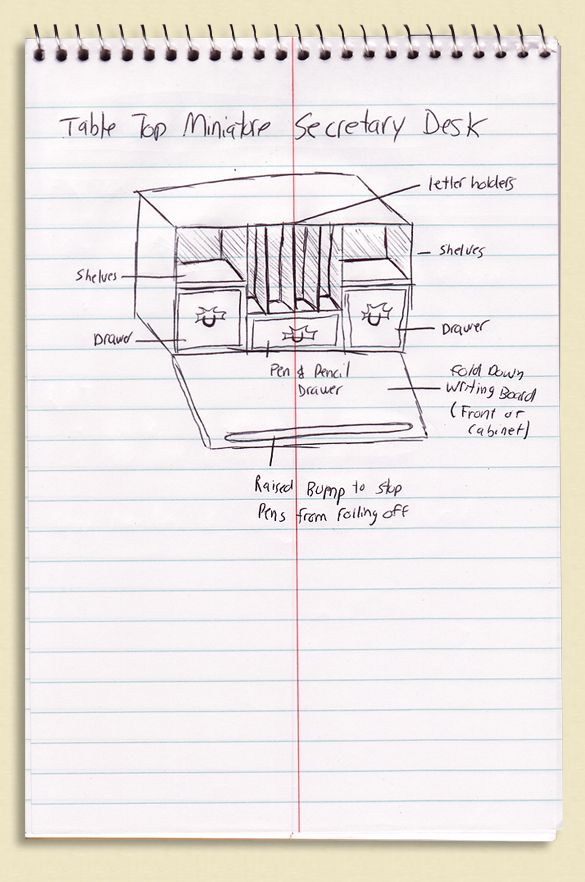 Table Top Miniature Secretary Desk
letter holders
Shelves
Shelves
Drawer
Drawer
Pen & Pencil
Drawer
Fold Down
Writing Board
(Front of
Cabinet)
Raised Bump to stop
Pens from falling off